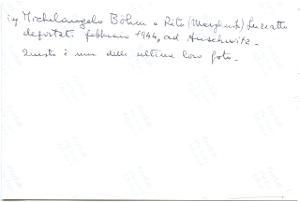 ing Michelangelo Böhm e Rita (Margherita) Luzzatto
deportati febbraio 1944, ad Auschwitz -
Questa è una delle ultime loro foto -